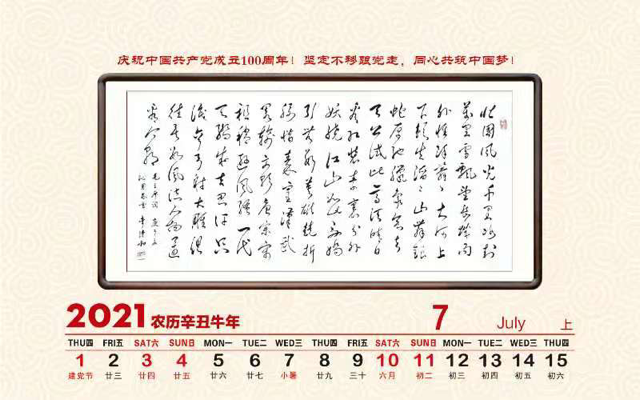 庆祝中国共产党成立100周年！坚定不移跟党走，同心共筑中国梦！
北国风光千里冰封
万里雪飘望长城内
外惟余莽莽大河上
下顿失滔滔山舞银
蛇原驰蜡象欲与
天公试比高须晴日
看红装素裹分外
妖娆江山如此多娇
引无数英雄竞折
腰惜秦皇汉武
略输文采唐宗宋
祖稍逊风骚一代
天骄成吉思汗只
识弯弓射大雕俱
往矣数风流人物还
看今朝
2021 农历辛丑牛年 7 July 上
THU四 FRI五 SAT六 SUN日 MON一 TUE二 WED三 THU四 FRI五 SAT六 SUN日 MON一 TUE二 WED三 THU四
1 2 3 4 5 6 7 8 9 10 11 12 13 14 15
建党节 廿三 廿四 廿五 廿六 廿七 小暑 廿九 三十 六月 初二 初三 初四 初五 初六